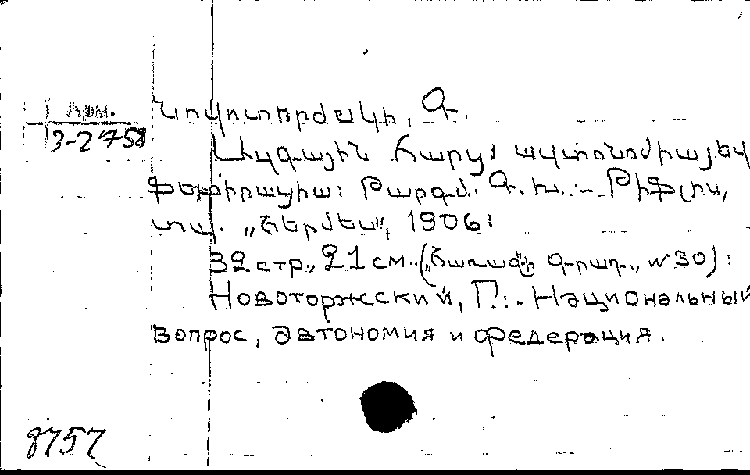 Арм.
3-2758
Նովոտորժսկի, Գ.
Ազգային հարց։ ավտոնոմիա եվ
ֆեդերացիա։ Թարգմ. Գ. Խ. – Թիֆլիս,
տպ. „Հերմես“, 1906։
32 стр., 21 см. („Հառաջ“ գրադ., № 30)։
Новоторжсский, Г.: - Национальный
вопрос, автономия и федерация.
8757